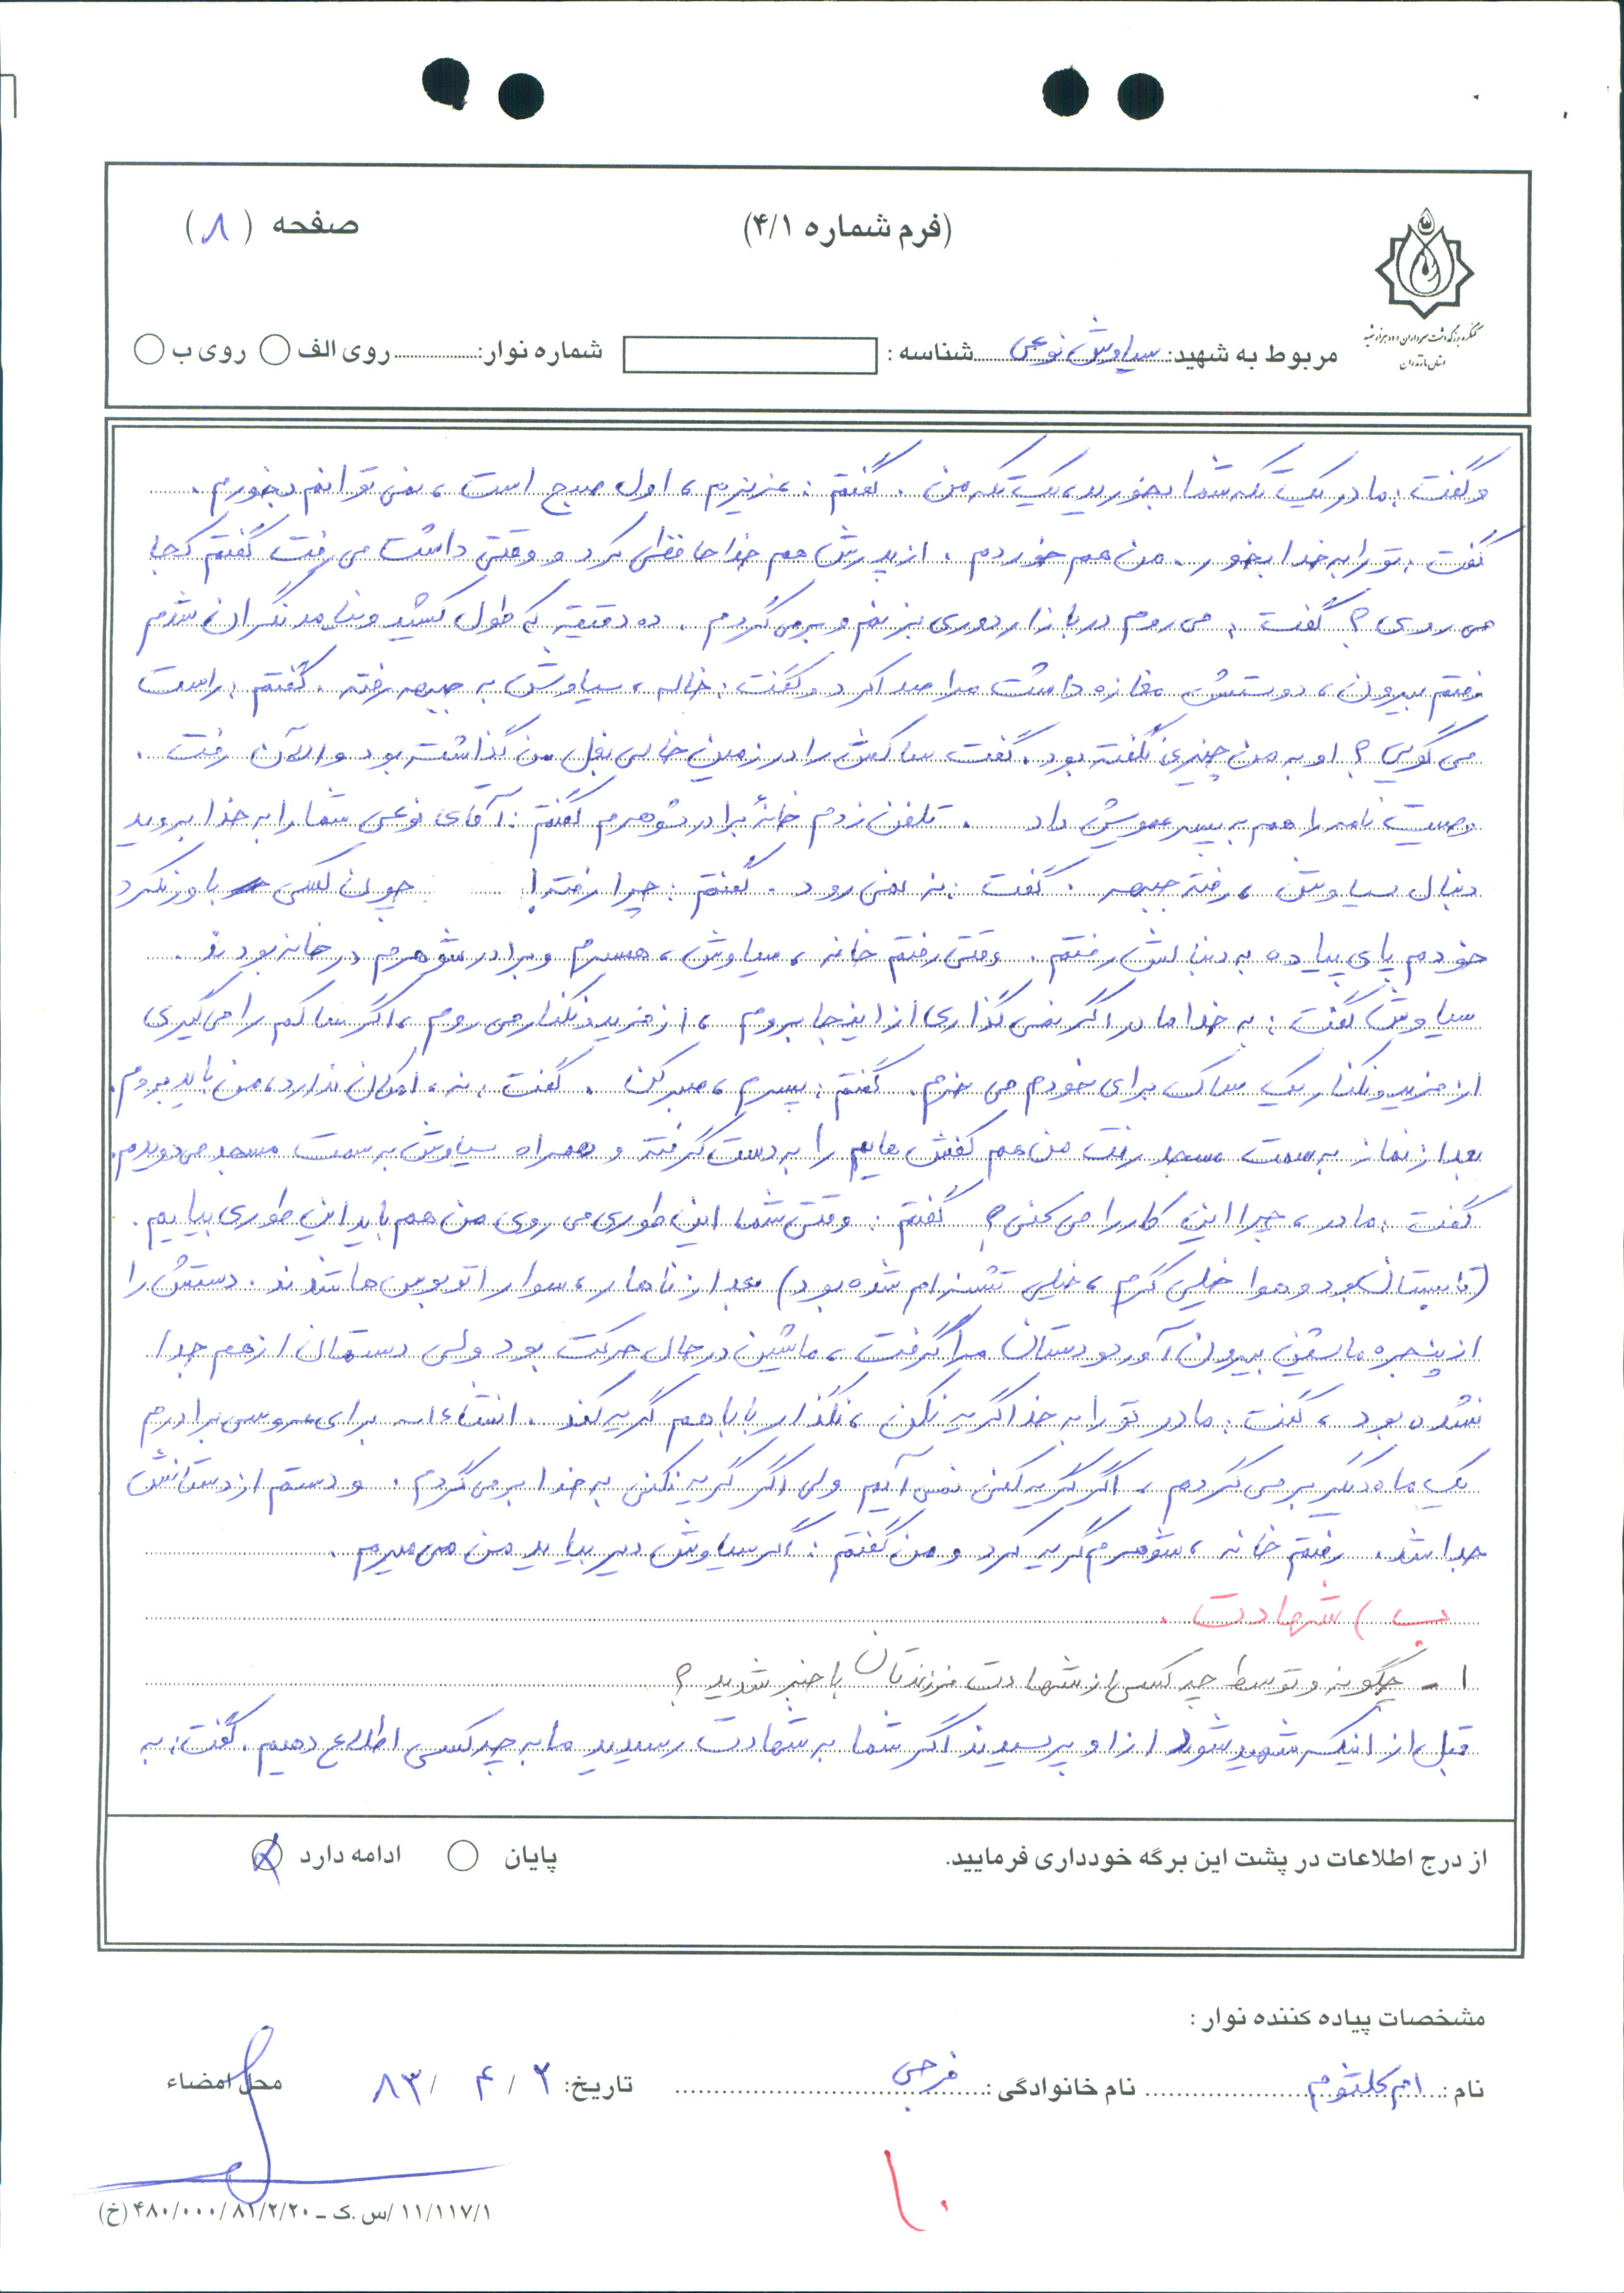 (فرم شماره ۴/۱)
صفحه (۸)
کنگره بزرگداشت سرداران و ده هزار شهید
استان مازندران
مربوط به شهید: سیاوش نوعی شناسه: شماره نوار: روی الف روی ب
و گفت: مادر یک تکه شما بخورید، یک تکه من. گفتم: عزیزم، اول صبح است، نمی توانم بخورم.
گفت: تو را به خدا بخور. من هم خوردم. از پدرش هم خداحافظی کرد و وقتی داشت می رفت گفتم کجا
می روی؟ گفت: می روم در بازار دوری بزنم و برمی گردم. ده دقیقه که طول کشید و نیامد نگران شدم
رفتم بیرون، دوستش مغازه داشت مرا صدا کرد و گفت: خاله، سیاوش به جبهه رفته. گفتم: راست
می گویی؟ او به من چیزی نگفته بود. گفت ساکش را در زمین خالی بغل من گذاشته بود و الآن رفت.
وصیت نامه را هم به پسر عمویش داد. تلفن زدم خانۀ برادر شوهرم گفتم: آقای نوعی شما را به خدا بروید
دنبال سیاوش، رفته جبهه. گفت: نه نمی رود. گفتم: چرا رفته! چون کسی باور نکرد
خودم پای پیاده به دنبالش رفتم. وقتی رفتم خانه، سیاوش، همسرم و برادر شوهرم در خانه بودند.
سیاوش گفت: به خدا مادر اگر نمی گذاری از اینجا بروم، از فریدونکنار می روم، اگر ساکم را می گیری
از فریدونکنار یک ساک برای خودم می خرم. گفتم: پسرم، صبر کن. گفت: نه، امکان ندارد، من باید بروم.
بعد از نماز به سمت مسجد رفت من هم کفش هایم را به دست گرفته و همراه سیاوش به سمت مسجد می دویدم.
گفت: مادر، چرا این کار را می کنی؟ گفتم: وقتی شما این طوری می روی من هم باید این طوری بیایم.
(تابستان بود و هوا خیلی گرم، خیلی تشنه ام شده بود) بعد از ناهار، سوار اتوبوس ها شدند. دستش را
از پنجره ماشین بیرون آورد و دستان مرا گرفت، ماشین در حال حرکت بود ولی دستمان از هم جدا
نشده بود، گفت: مادر تو را به خدا گریه نکن، نگذار بابا هم گریه کند. انشاءاله برای عروسی برادرم
یک ماه دیگر برمی گردم، اگر گریه کنی نمی آیم ولی اگر گریه نکنی به خدا برمی گردم. و دستم از دستانش
جدا شد. رفتم خانه، شوهرم گریه کرد و من گفتم: اگر سیاوش دیر بیاید من می میرم.
ب) شهادت.
۱- چگونه و توسط چه کسی از شهادت فرزندتان با خبر شدید؟
قبل از اینکه شهید شود از او پرسیدند اگر شما به شهادت رسیدید ما به چه کسی اطلاع دهیم. گفت: به
از درج اطلاعات در پشت این برگه خودداری فرمایید. پایان ادامه دارد
مشخصات پیاده کننده نوار:
نام: ام کلثوم نام خانوادگی: فرجی تاریخ: ۲ / ۴ / ۸۳ محل امضاء
۱۰
۱۱/۱۱۷/۱/س.ک ـ ۴۸۰/۰۰۰/۸۱/۲/۲۰ (خ)